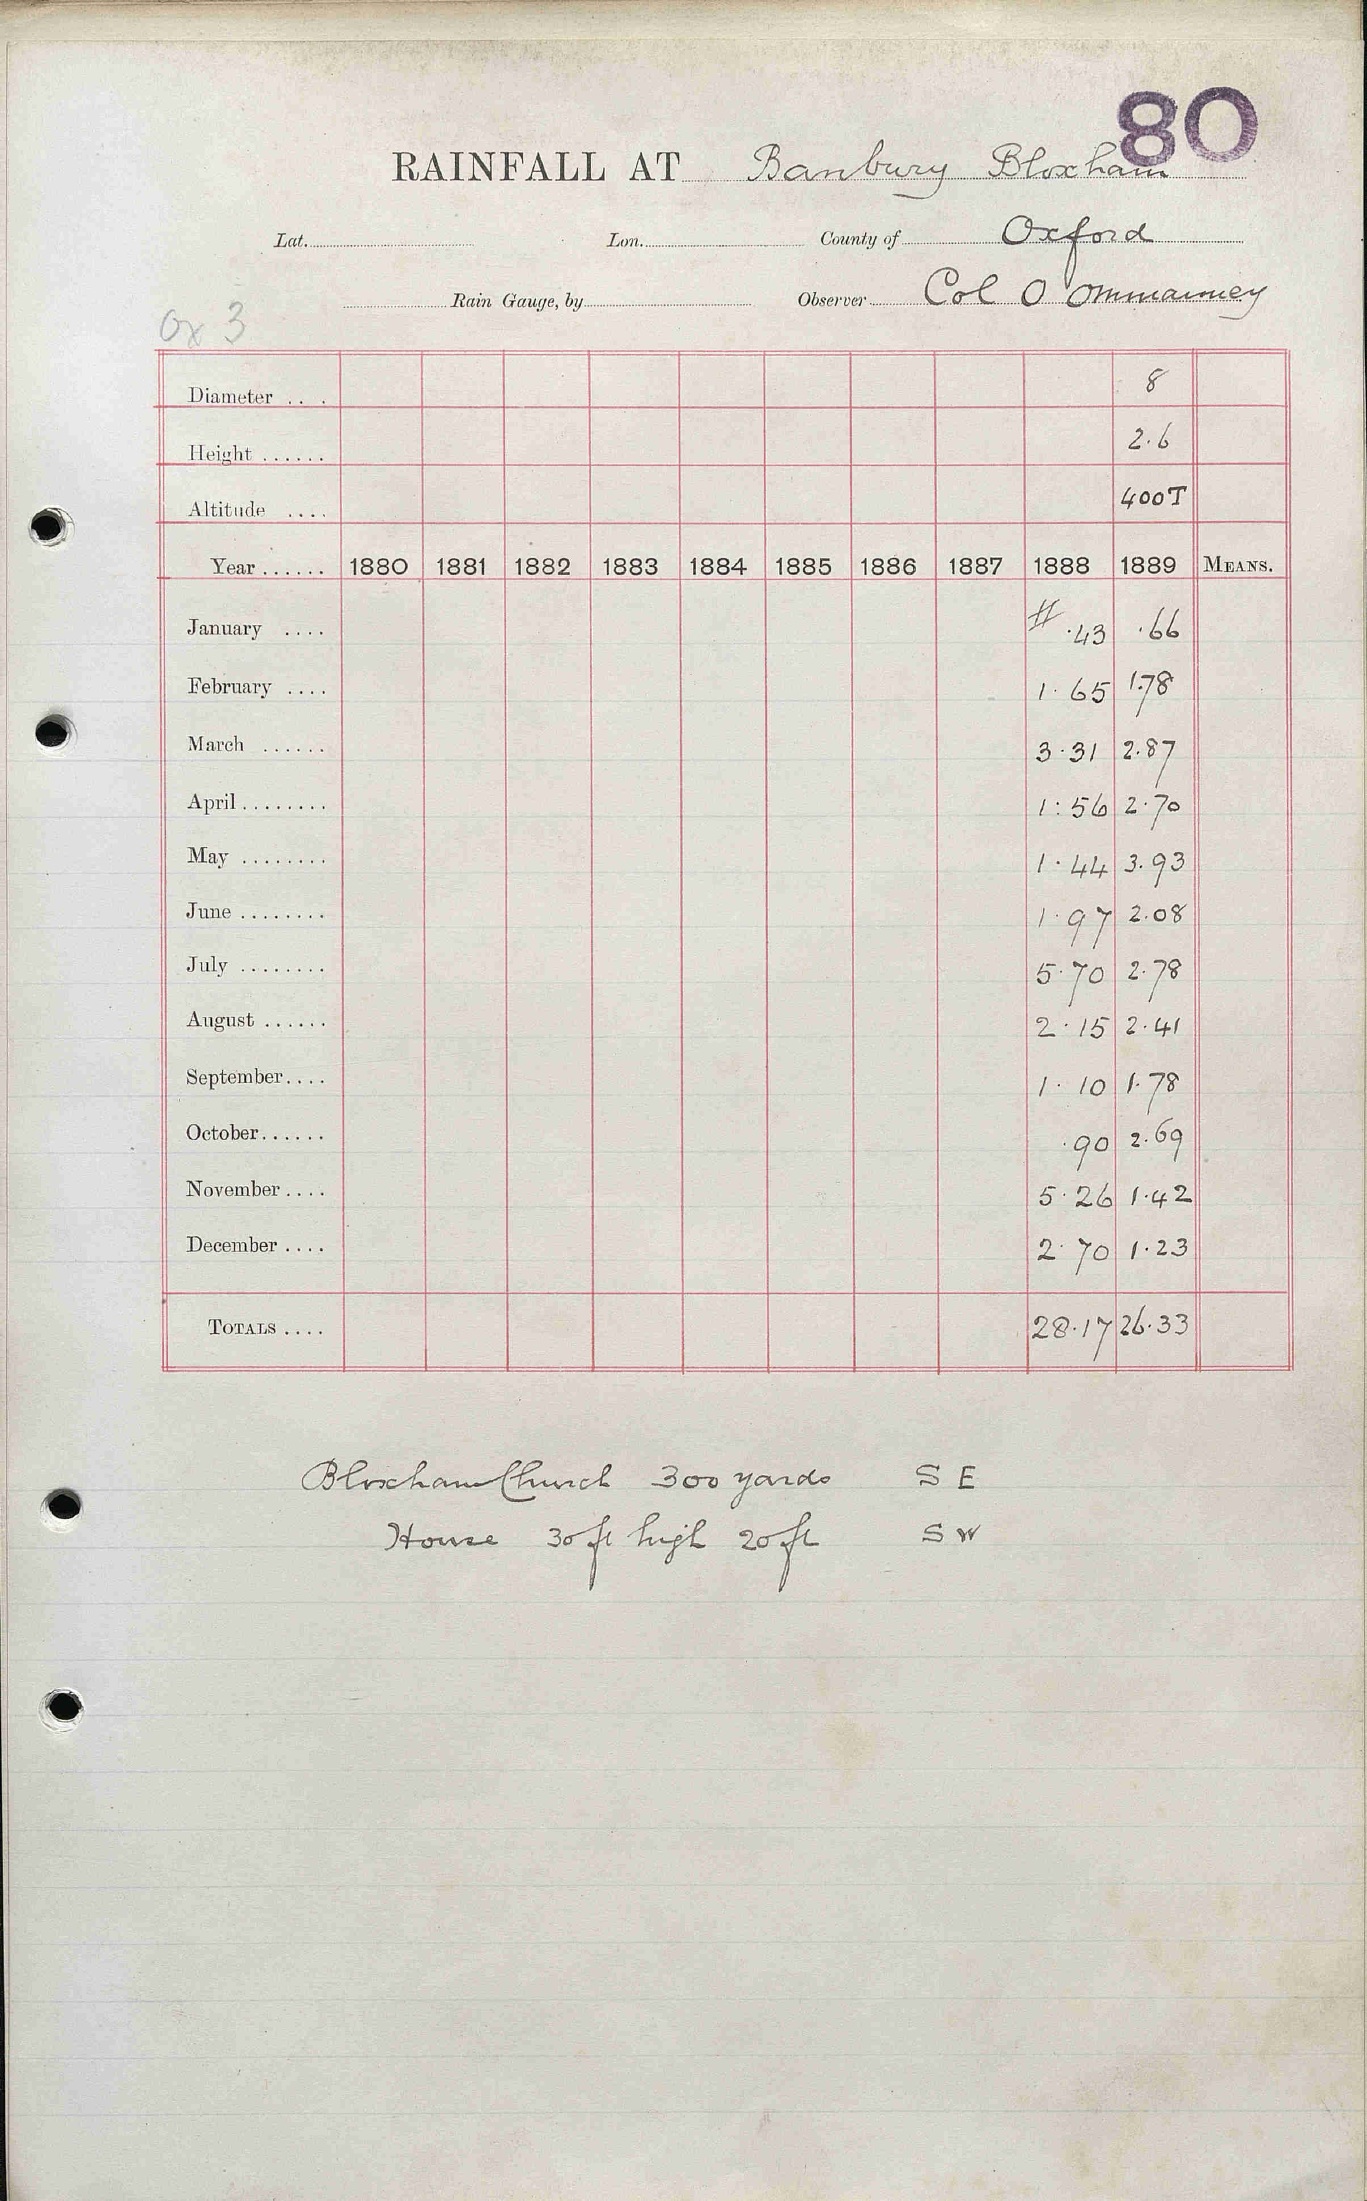 80
RAINFALL AT Banbury Bloxham
Lat. Lon. County of Oxford
Rain Gauge, by Observer Col O Ommanney
Ox 3
Diameter . . . 8
Height ...... 2.6
Altitude .... 400T
Year ...... 1880 1881 1882 1883 1884 1885 1886 1887 1888 1889 MEANS.
January .... # .43 .66
February .... 1.65 1.78
March ...... 3.31 2.87
April ........ 1:56 2.70
May ........ 1.44 3.93
June ........ 1.97 2.08
July ........ 5.70 2.78
August ...... 2.15 2.41
September.... 1.10 1.78
October...... .90 2.69
November.... 5.26 1.42
December.... 2.70 1.23
TOTALS .... 28.17 26.33
Bloxham Church 300 yards S E
House 30 ft high 20 ft S W